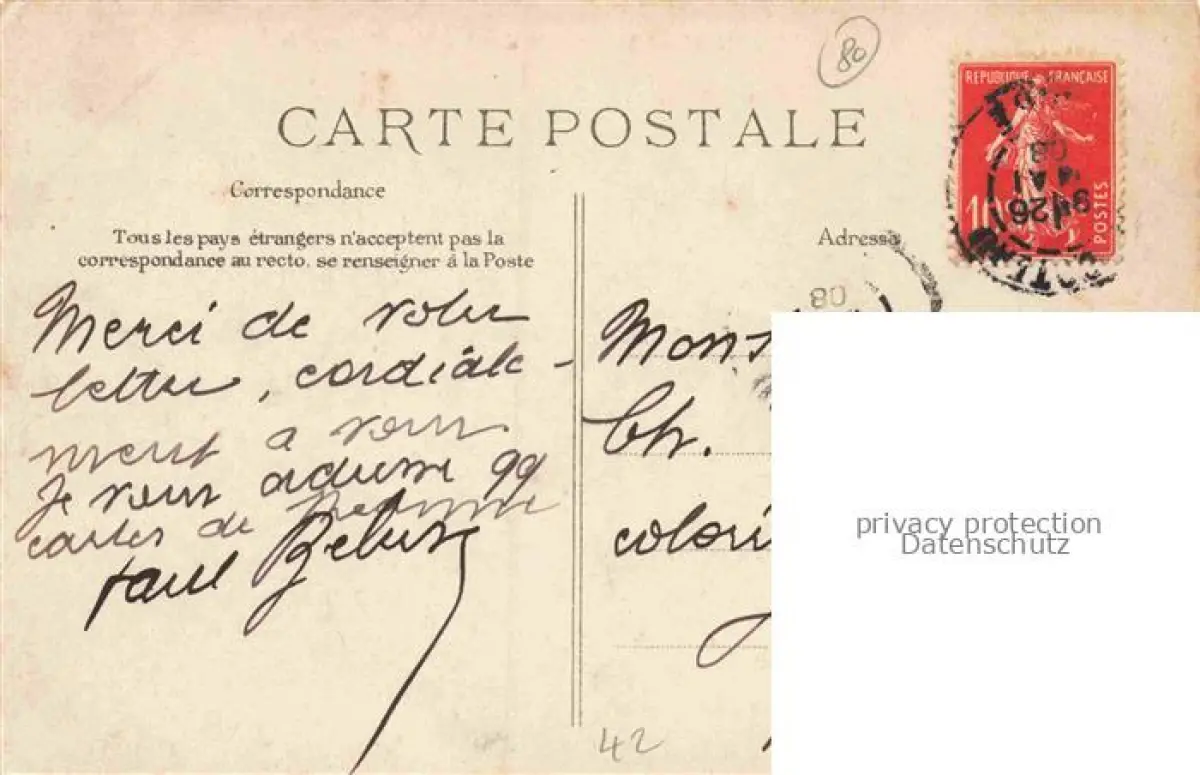 80
CARTE POSTALE
REPUBLIQUE FRANÇAISE
10
POSTES
9H 26
08
Correspondance
Tous les pays étrangers n'acceptent pas la
correspondance au recto, se renseigner à la Poste
Merci de votre
lettre, cordiale-
ment à vous
Je vous adresse 99
cartes de
Paul
Adresse
08
Mons
Ch.
colori
42
privacy protection
Datenschutz